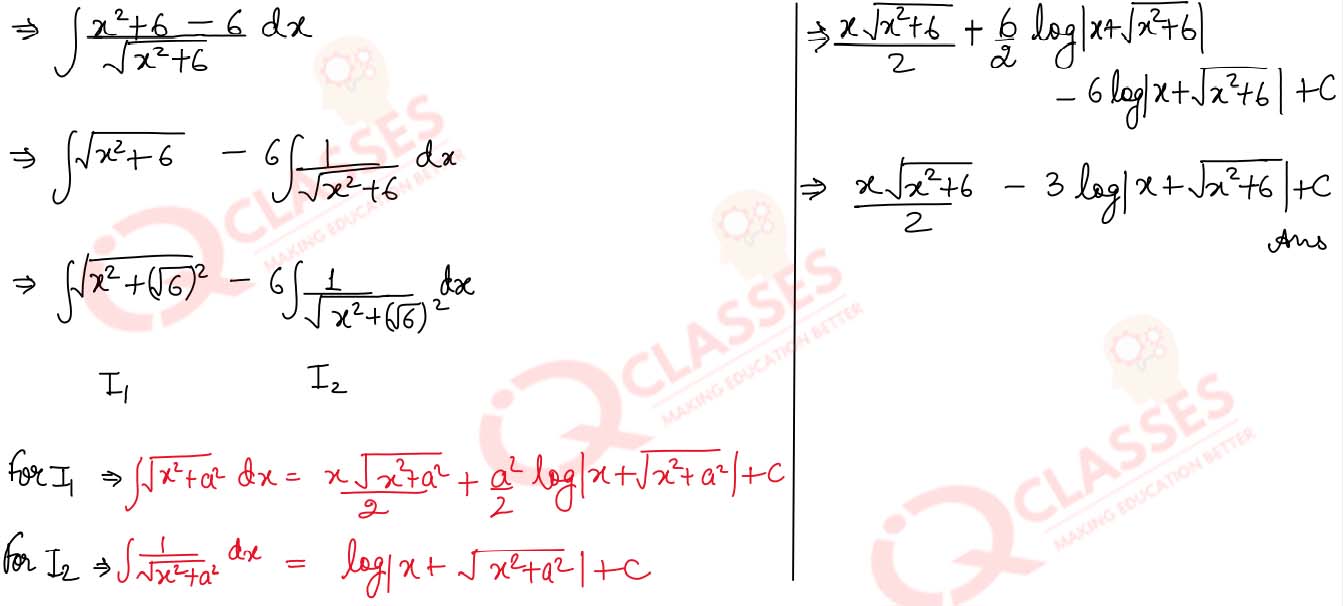 ⇒ ∫ (x²+6 − 6)/√(x²+6) dx
⇒ ∫√(x²+6) − 6∫ 1/√(x²+6) dx
⇒ ∫√(x²+(√6)²) − 6∫ 1/√(x²+(√6)²) dx
I₁ I₂
for I₁ ⇒ ∫√(x²+a²) dx = x√(x²+a²)/2 + a²/2 log|x+√(x²+a²)|+C
for I₂ ⇒ ∫ 1/√(x²+a²) dx = log|x+√(x²+a²)|+C
⇒ x√(x²+6)/2 + 6/2 log|x+√(x²+6)|
− 6 log|x+√(x²+6)| +C
⇒ x√(x²+6)/2 − 3 log|x+√(x²+6)|+C
Ans
iQ CLASSES
MAKING EDUCATION BETTER
iQ CLASSES
MAKING EDUCATION BETTER
iQ CLASSES
MAKING EDUCATION BETTER